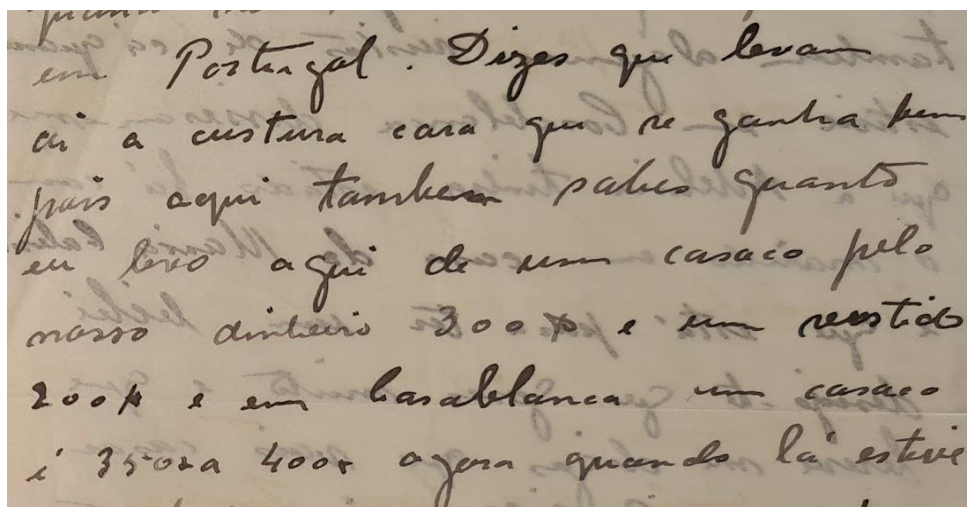 em Portugal. Dizes que levam
ai a custura cara que se ganha bem
pois aqui tambem sabes quanto
eu levo aqui de um casaco pelo
nosso dinheiro 300$ e um vestido
200$ e em Casablanca um casaco
é 350 a 400$ agora quando lá estive